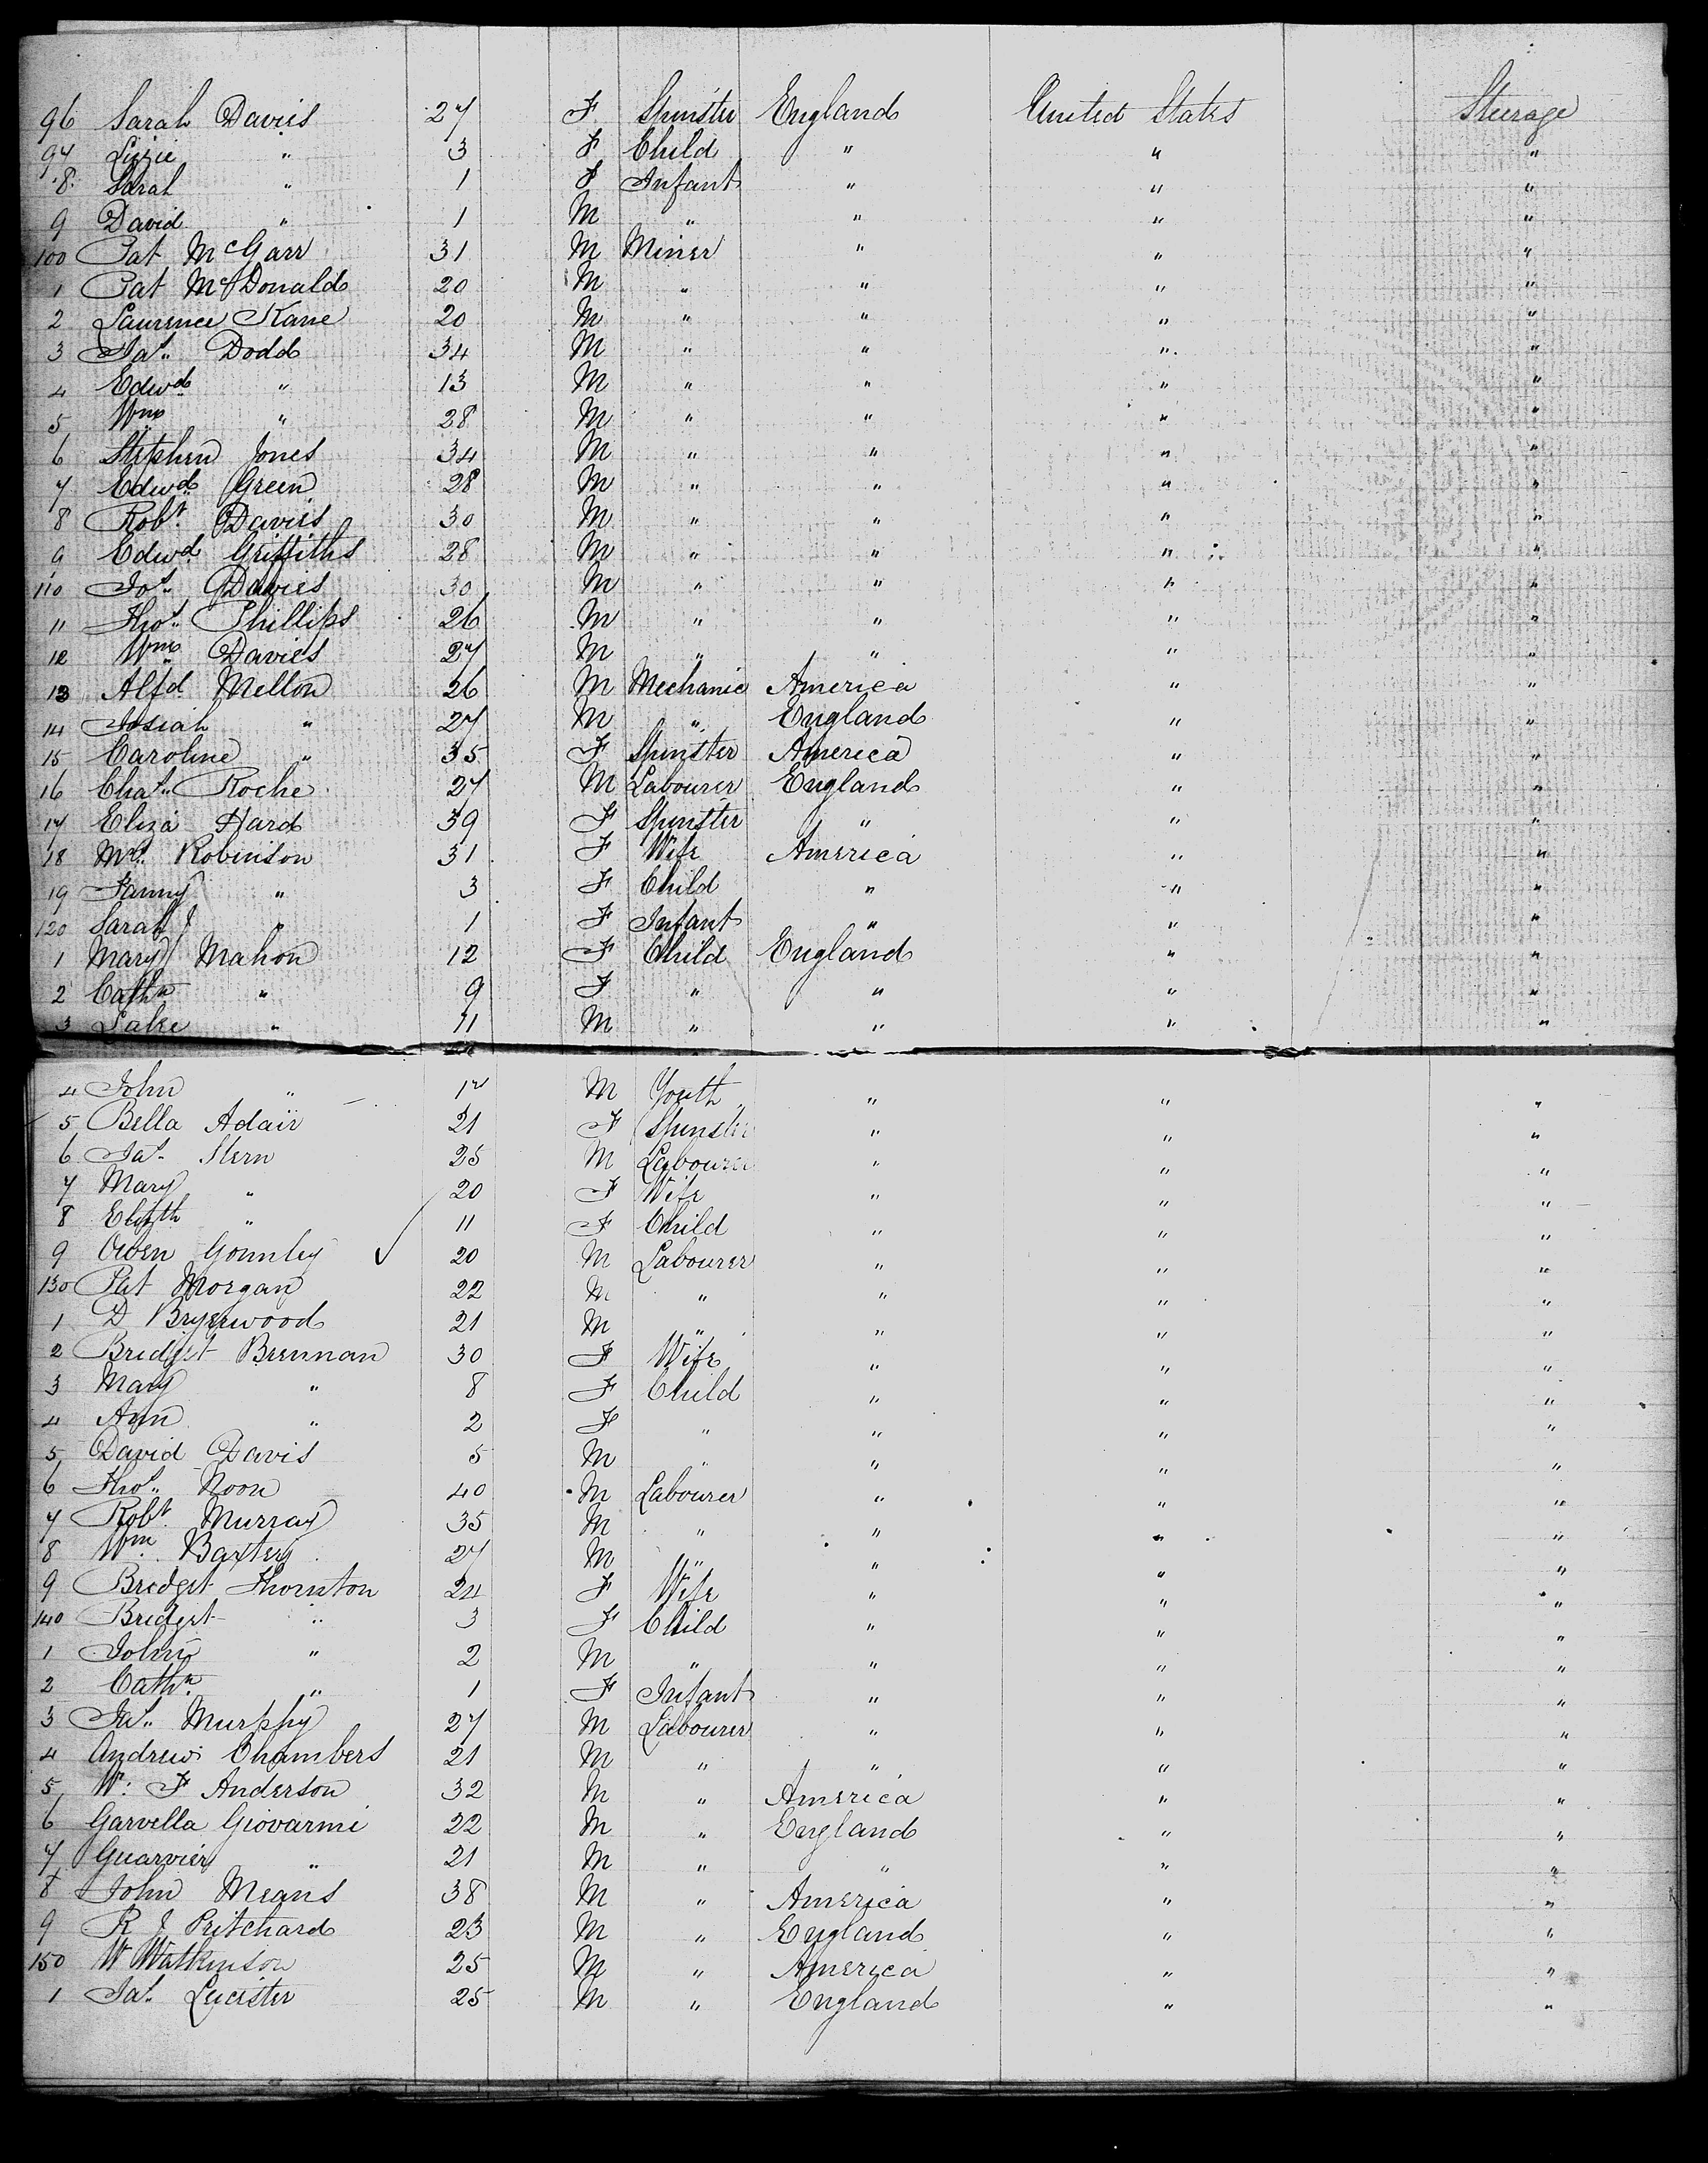 96 Sarah Davies 27 F Spinster England United States Steerage
97 Lizzie " 3 F Child " " "
8 Sarah " 1 F Infant " " "
9 David " 1 M " " " "
100 Pat McGarr 31 M Miner " " "
1 Pat McDonald 20 M " " " "
2 Laurence Kane 20 M " " " "
3 Jas. Dodd 34 M " " " "
4 Edwd. " 13 M " " " "
5 Wm " 28 M " " " "
6 Stephen Jones 34 M " " " "
7 Edwd. Green 28 M " " " "
8 Robt. Davies 30 M " " " "
9 Edwd. Griffiths 28 M " " " "
110 Jos. Davies 30 M " " " "
11 Thos. Phillips 26 M " " " "
12 Wm Davies 27 M " " " "
13 Alfd. Mellon 26 M Mechanic America " "
14 Josiah " 27 M " England " "
15 Caroline " 35 F Spinster America " "
16 Chas. Roche 27 M Labourer England " "
17 Eliza Hard 39 F Spinster " " "
18 Mrs. Robinson 31 F Wife America " "
19 Fanny " 3 F Child " " "
120 Sarah J " 1 F Infant " " "
1 Mary Mahon 12 F Child England " "
2 Cathn " 9 F " " " "
3 Lake " 11 M " " " "
4 John " M Youth " " "
5 Bella Adair 21 F Spinster " " "
6 Jas. Stern 25 M Labourer " " "
7 Mary " 20 F Wife " " "
8 Elizth " 11 F Child " " "
9 Owen Gormley 20 M Labourer " " "
130 Pat Morgan 22 M " " " "
1 D Bryerwood 21 M " " " "
2 Bridget Brennan 30 F Wife " " "
3 Mary " 8 F Child " " "
4 Ann " 2 F " " " "
5 David Davis 5 M " " " "
6 Thos. Noon 40 M Labourer " " "
7 Robt. Murray 35 M " " " "
8 Wm. Baxter 27 M " " " "
9 Bridget Thornton 24 F Wife " " "
140 Bridget " 3 F Child " " "
1 John " 2 M " " " "
2 Cathn. " 1 F Infant " " "
3 Jas. Murphy 27 M Labourer " " "
4 Andrew Chambers 21 M " " " "
5 W. F Anderson 32 M " America " "
6 Garvella Giovarmi 22 M " England " "
7 Guarvier " 21 M " " " "
8 John Means 38 M " America " "
9 R J Pritchard 23 M " England " "
150 W Watkinson 25 M " America " "
1 Jas. Leicester 25 M " England " "